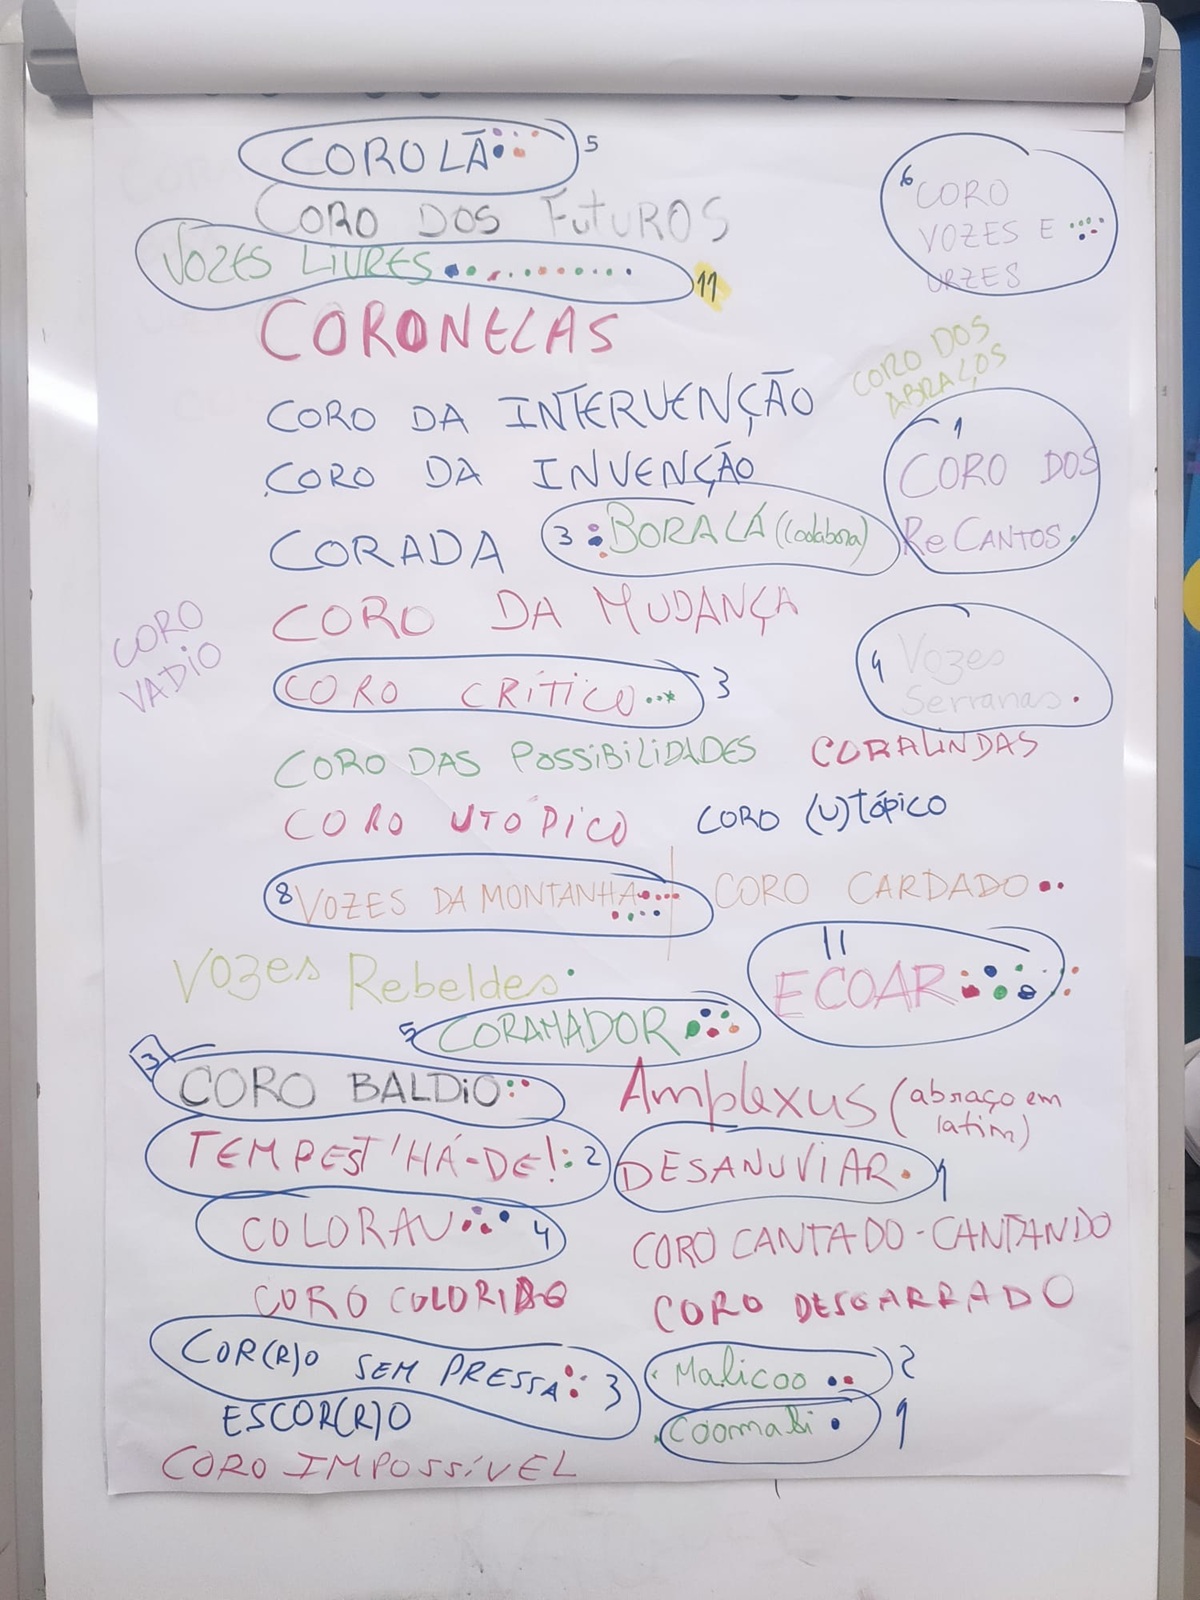 COROLÃ 5
CORO DOS FUTUROS
VOZES LIVRES 11
CORONELAS
CORO DA INTERVENÇÃO
CORO DA INVENÇÃO
CORADA
3 BORALÁ (Coolabora)
CORO DA MUDANÇA
CORO CRÍTICO 3
CORO DAS POSSIBILIDADES
CORO UTÓPICO
CORO (U)TÓPICO
8 VOZES DA MONTANHA
CORO CARDADO
6 CORO
VOZES E
URZES
CORO DOS
ABRAÇOS
1
CORO DOS
ReCANTOS
CORO
VADIO
1 Vozes
Serranas
CORALINDAS
Vozes Rebeldes
11
ECOAR
5 CORAMADOR
3 CORO BALDIO
Amplexus (abraço em
latim)
TEMPEST'HÁ-DE! 2
DESANUVIAR 1
COLORAU 4
CORO CANTADO-CANTANDO
CORO COLORIDO
CORO DESGARRADO
COR(R)O SEM PRESSA 3
Malicoo 2
ESCOR(R)O
Coomali 1
CORO IMPOSSÍVEL